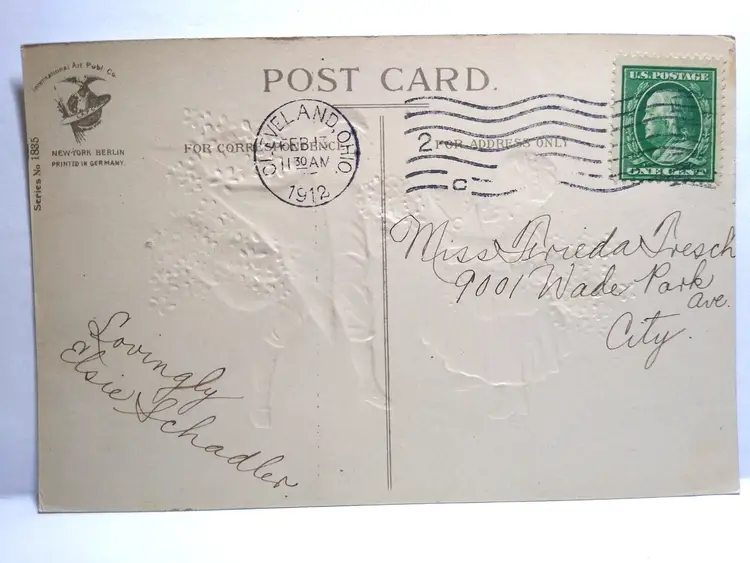 International Art Publ. Co.
NEW-YORK BERLIN
PRINTED IN GERMANY
Series No 1885
POST CARD.
FOR CORRESPONDENCE
FOR ADDRESS ONLY
CLEVELAND, OHIO.
FEB 13
11 30 AM
1912
2
C
U.S. POSTAGE
ONE CENT
Miss Frieda Tresch
9001 Wade Park
Ave.
City.
Lovingly
Elsie Schadler.